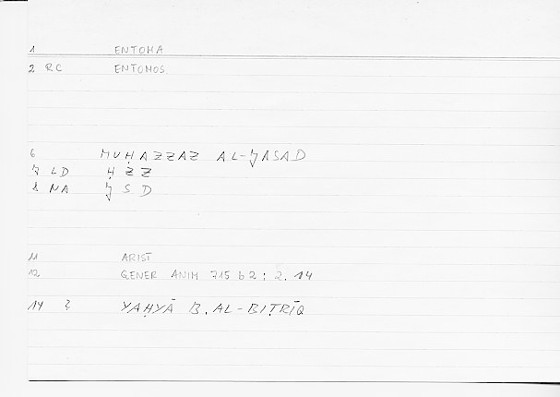 1 ENTOMA
2 RC ENTOMOS
6 MUḤAZZAZ AL-ǦASAD
7 LD ḤZZ
8 NA ǦSD
11 ARIST
12 GENER ANIM 715 b 2 : 2.14
14 3 YAḤYĀ B. AL-BIṬRĪQ